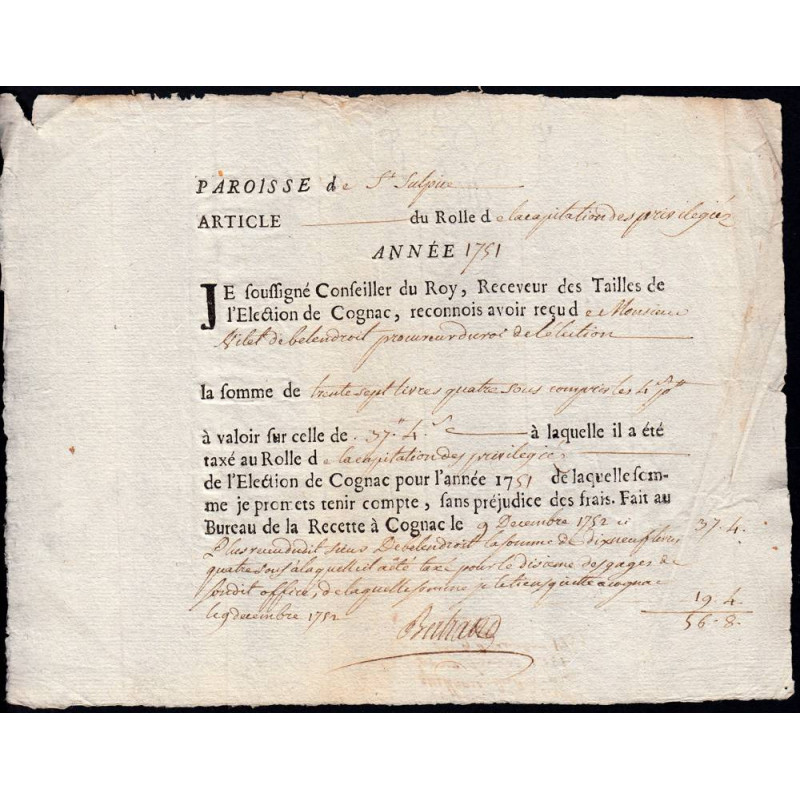 PAROISSE de St Sulpice
ARTICLE du Rolle de la capitation des privilegiéz
ANNÉE 1751
JE ſouſſigné Conſeiller du Roy, Receveur des Tailles de
l'Election de Cognac, reconnois avoir reçu de Monsieur
de belendroit procureur du roi de l'election
la ſomme de trente sept livres quatre sous compris les 4 s. pr tt
à valoir sur celle de 37 tt 4 s. à laquelle il a été
taxé au Rolle de la capitation des privilegiéz
de l'Election de Cognac pour l'année 1751 de laquelle ſom-
me je promets tenir compte, ſans préjudice des frais. Fait au
Bureau de la Recette à Cognac le 9 Decembre 1752 ci 37.4.
Plus receu dudit sieur Debelendroit la somme de dixneuf livres
quatre sous a laquelle il a été taxé pour le dixieme des gages de
sondit office, de laquelle somme je le tiens quitte a cognac
le 9 decembre 1752 19.4.
56.8.
Bertrand